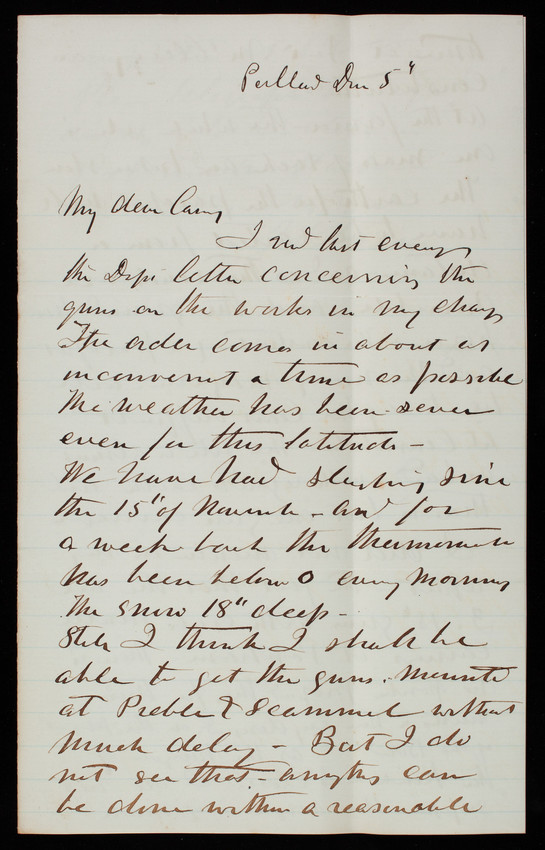 Portland Dec 5"
My dear Casey
I recd last evening
the Dept letter concerning the
guns on the works in my charge
The order comes in about as
inconvenient a time as possible
The weather has been severe
even for this latitude -
We have had sleighing since
the 15" of November - and for
a week back the thermometer
has been below 0 every morning
The snow 18" deep -
Still I think I shall be
able to get the guns mounted
at Preble & Scammel without
much delay - But I do
not see that anything can
be done within a reasonable